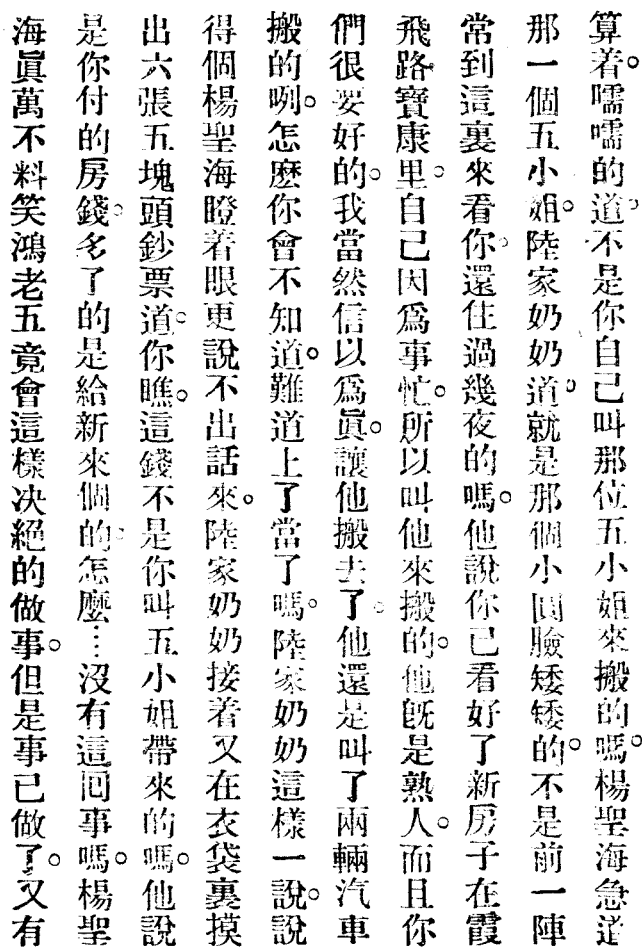 算着。嚅嚅的道。不是你自己叫那位五小姐來搬的嗎。楊聖海急道
那一個五小姐。陸家奶奶道。就是那個小圓臉矮矮的。不是前一陣
常到這裏來看你。還住過幾夜的嗎。他說你已看好了新房子在霞
飛路寶康里。自己因爲事忙。所以叫他來搬的。他旣是熟人。而且你
們很要好的。我當然信以爲眞。讓他搬去了。他還是叫了兩輛汽車
搬的咧。怎麽你會不知道。難道上了當了嗎。陸家奶奶這樣一說。說
得個楊聖海瞪着眼更說不出話來。陸家奶奶接着又在衣袋裏摸
出六張五塊頭鈔票道。你瞧。這錢不是你叫五小姐帶來的嗎。他說
是你付的房錢。多了的是給新來個的。怎麽⋯⋯沒有這回事嗎。楊聖
海眞萬不料笑鴻老五竟會這樣決絕的做事。但是事已做了。又有